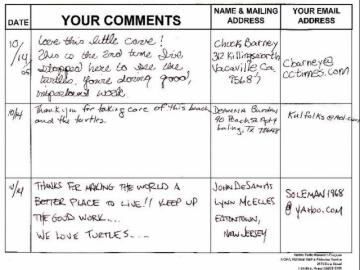 DATE
YOUR COMMENTS
NAME & MAILING ADDRESS
YOUR EMAIL ADDRESS
10/14/05
Love this little cove!
This is the 2nd time I've
stopped here to see the
turtles. You're doing good,
important work.
Chuck Barney
312 Killingsworth
Vacaville Ca.
95687
cbarney@
cctimes.com
10/14
Thank you for taking care of this beach
and the turtles.
90 Beach St Apt
TX 78648
THANKS FOR MAKING THE WORLD A
BETTER PLACE TO LIVE!! KEEP UP
THE GOOD WORK...
WE LOVE TURTLES....
JOHN DESANTIS
LYNN MCELLES
EATONTOWN,
NEW JERSEY
SOLEMAN1968
@YAHOO.COM